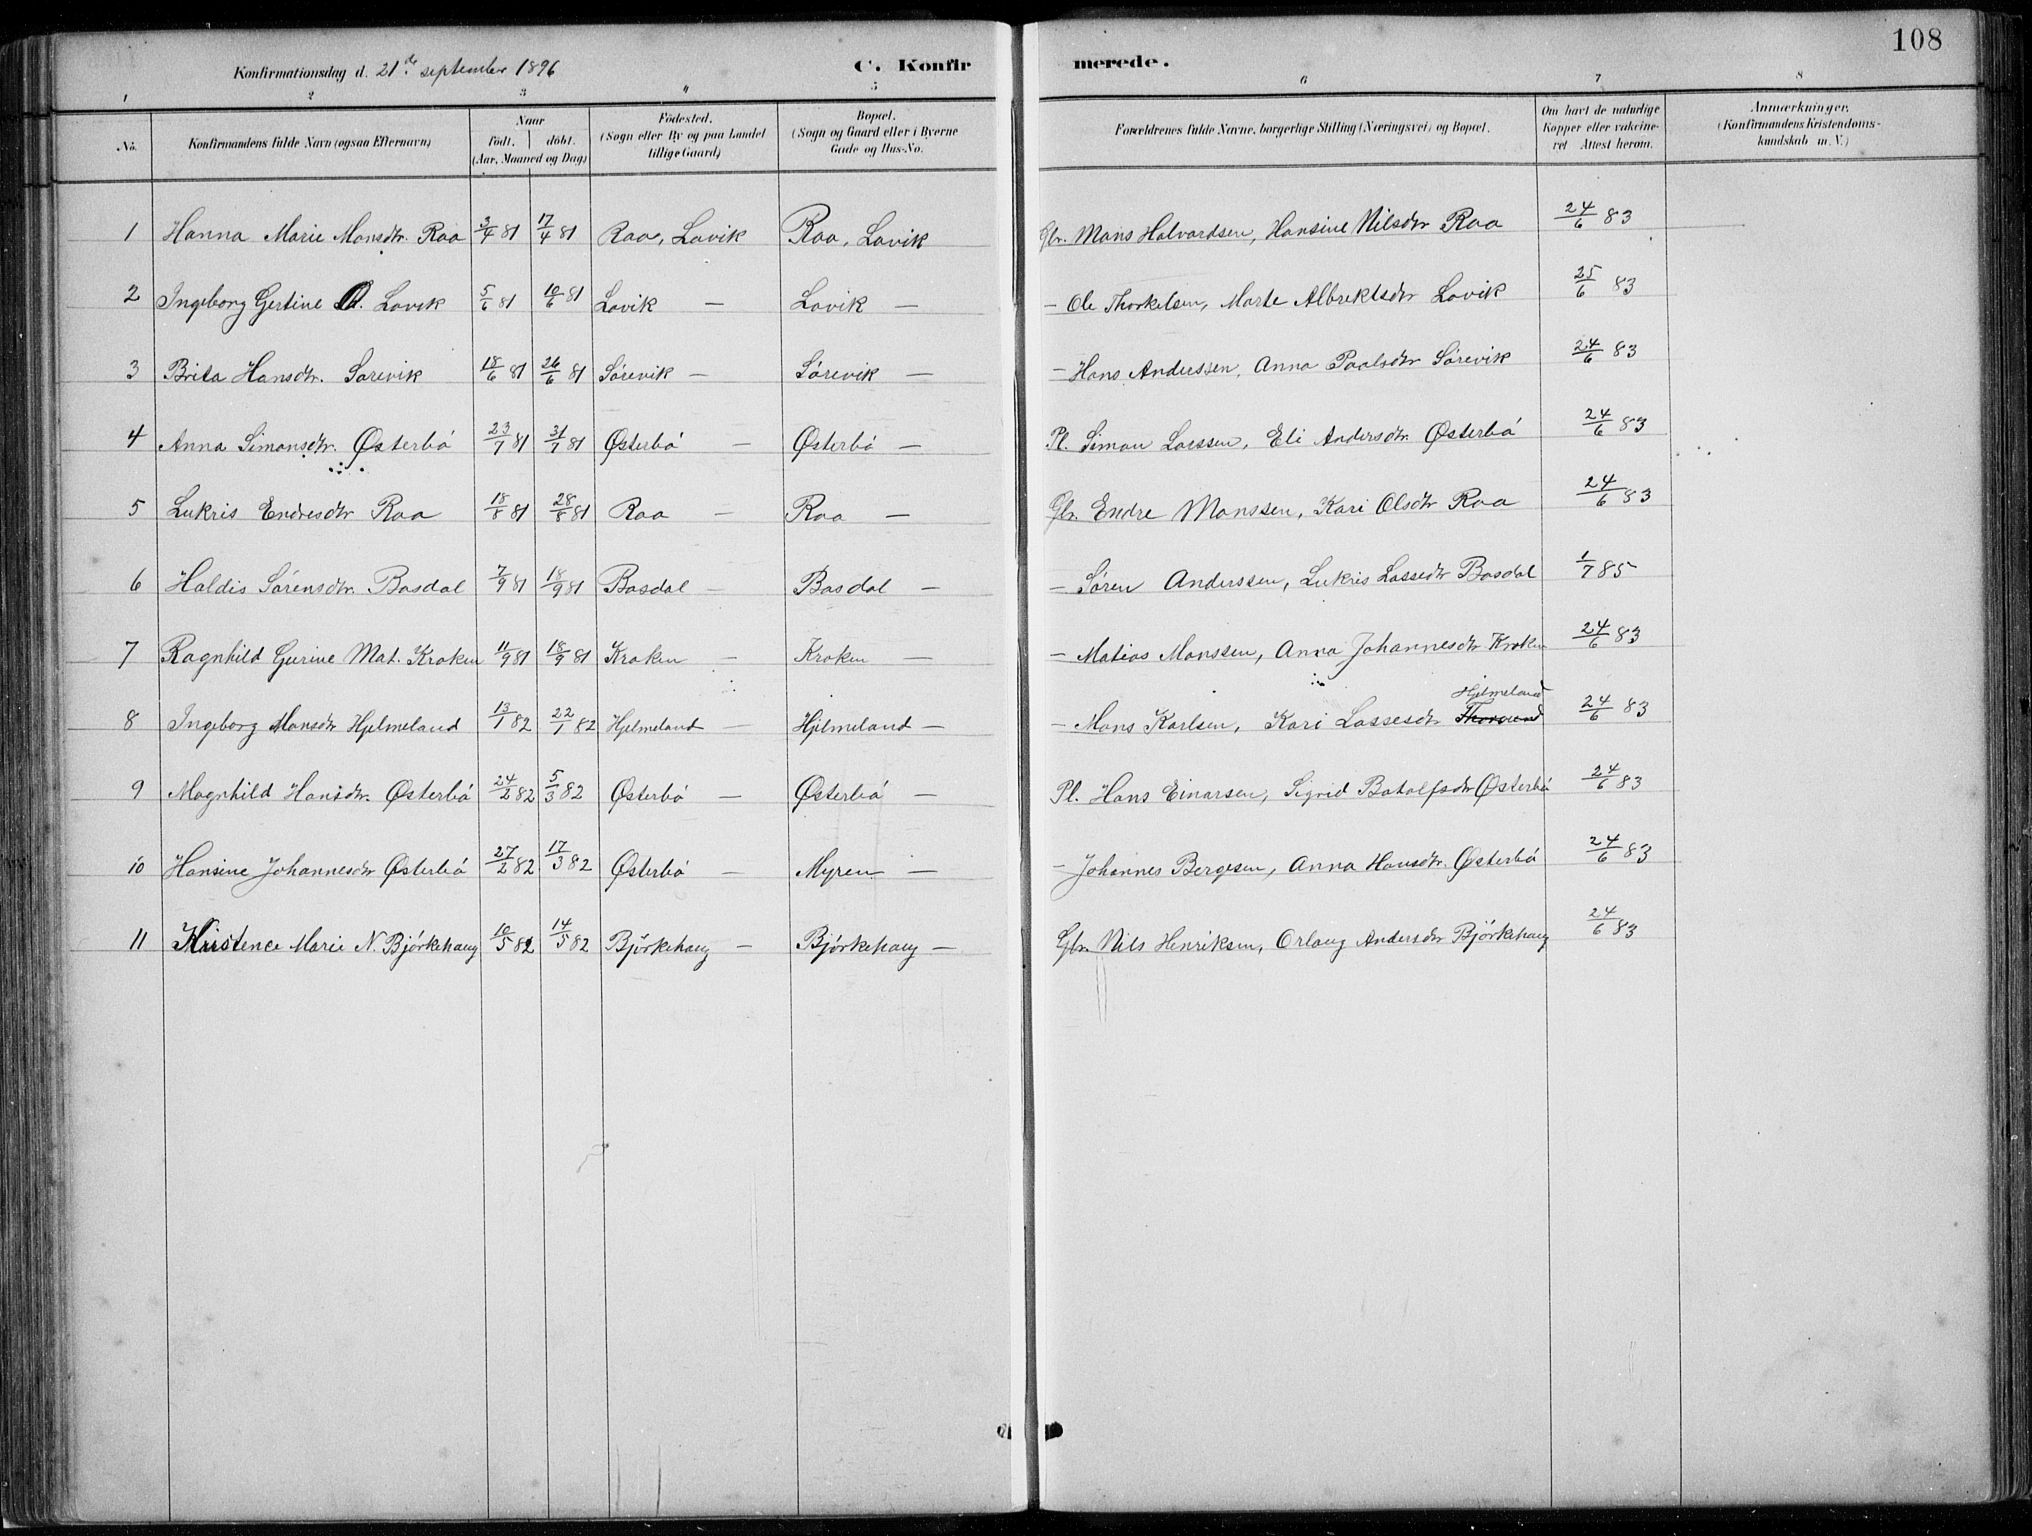 108
Konfirmationsdag d. 21de september 1896
C. Konfirmerede.
1 2 3 4 5 6 7 8
No. Konfirmandens fulde Navn (ogsaa Efternavn) Naar födt. döbt. (Aar, Maaned og Dag) Födested. (Sogn eller By og paa Landet tillige Gaard) Bopæl. (Sogn og Gaard eller i Byerne Gade og Hus-No. Forældrenes fulde Navne, borgerlige Stilling (Næringsvei) og Bopæl. Om havt de naturlige Kopper eller vakcineret Attest herom. Anmærkninger. (Konfirmandens Kristendomskundskab m. V.)
1 Hanna Marie Monsdtr. Raa 3/4 81 17/4 81 Raa, Lavik Raa, Lavik Gbr. Mons Halvordsen, Hansine Nilsdtr Raa 24/6 83
2 Ingeborg Gertine O. Lavik 5/6 81 10/6 81 Lavik — Lavik — — Ole Thorkelsen, Marte Albrektsdtr Lavik 25/6 83
3 Brita Hansdtr. Sørevik 18/6 81 26/6 81 Sørevik — Sørevik — — Hans Anderssen, Anna Paalsdtr Sørevik 24/6 83
4 Anna Simonsdtr. Østerbø 23/7 81 31/7 81 Østerbø — Østerbø — Pl. Simon Lassen, Eli Andersdtr. Østerbø 24/6 83
5 Lukris Endresdtr Raa 18/8 81 28/8 81 Raa — Raa — Gbr. Endre Monssen, Kari Olsdtr Raa 24/6 83
6 Haldis Sørensdtr. Basdal 7/9 81 18/9 81 Basdal — Basdal — — Søren Anderssen, Lukris Lassedtr Basdal 1/7 85
7 Ragnhild Gurine Mat. Kroken 11/9 81 18/9 81 Kroken — Kroken — — Matias Monssen, Anna Johannesdtr Kroken 24/6 83
Hjelmeland
8 Ingeborg Monsdtr Hjelmeland 13/1 82 22/1 82 Hjelmeland — Hjelmeland — — Mons Karlsen, Kari Lassesdtr 24/6 83
9 Magnhild Hansdtr. Østerbø 24/2 82 5/3 82 Østerbø — Østerbø — Pl. Hans Einarsen, Sigrid Botolfsdtr Østerbø 24/6 83
10 Hansine Johannesdtr Østerbø 27/2 82 17/3 82 Østerbø — Myren — — Johannes Bergesen, Anna Hansdtr. Østerbø 24/6 83
11 Kristence Marie N. Bjørkehaug 10/5 82 14/5 82 Bjørkehaug — Bjørkehaug — Gbr. Nils Henriksen, Orlaug Andersdtr Bjørkehaug 24/6 83